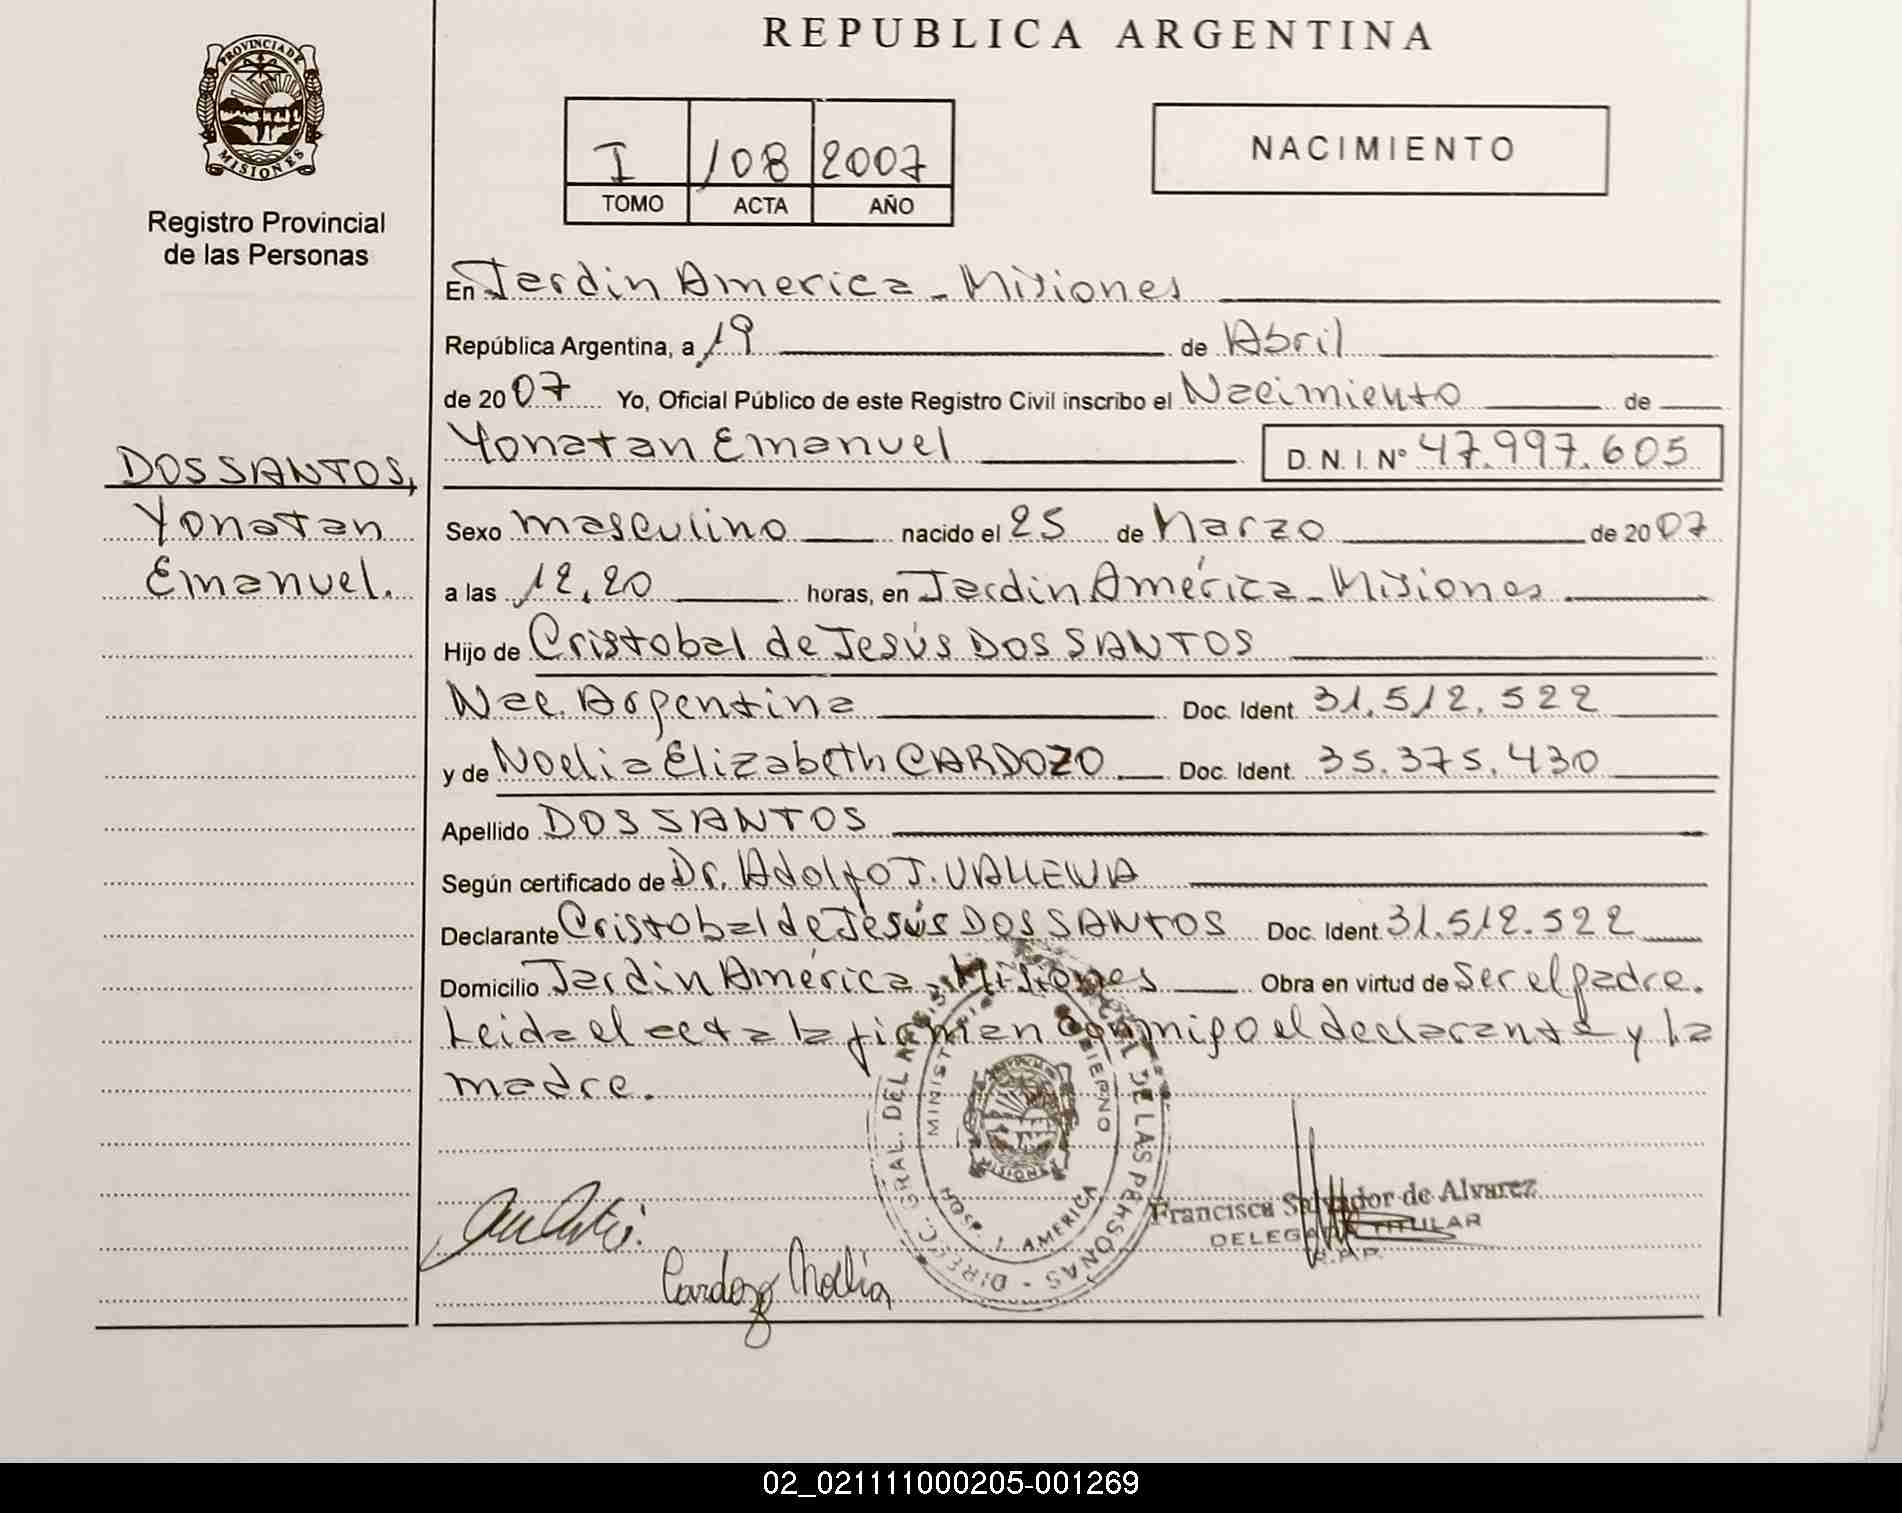 REPUBLICA ARGENTINA
PROVINCIA DE
MISIONES
Registro Provincial
de las Personas
I 108 2007
TOMO ACTA AÑO
NACIMIENTO
En Jardin America - Misiones
República Argentina, a 19 de Abril
de 2007 Yo, Oficial Público de este Registro Civil inscribo el Nacimiento de
Yonatan Emanuel D. N. I. Nº 47.997.605
DOS SANTOS,
Yonatan
Emanuel.
Sexo masculino nacido el 25 de Marzo de 2007
a las 12,20 horas, en Jardin América - Misiones
Hijo de Cristobal de Jesús DOS SANTOS
Nac. Argentina Doc. Ident. 31.512.522
y de Noelia Elizabeth CARDOZO Doc. Ident. 35.375.430
Apellido DOS SANTOS
Según certificado de Dr. Adolfo J.
Declarante Cristobal de Jesús DOS SANTOS Doc. Ident. 31.512.522
Domicilio Jardin América - Misiones Obra en virtud de Ser el padre.
Leida el acta la firman conmigo el declarante y la
madre.
MISIONES
AMERICA
Francisca Salvador de Alvarez
DELEGADA TITULAR
R.P.P.
Cardozo Noelia
02_021111000205-001269